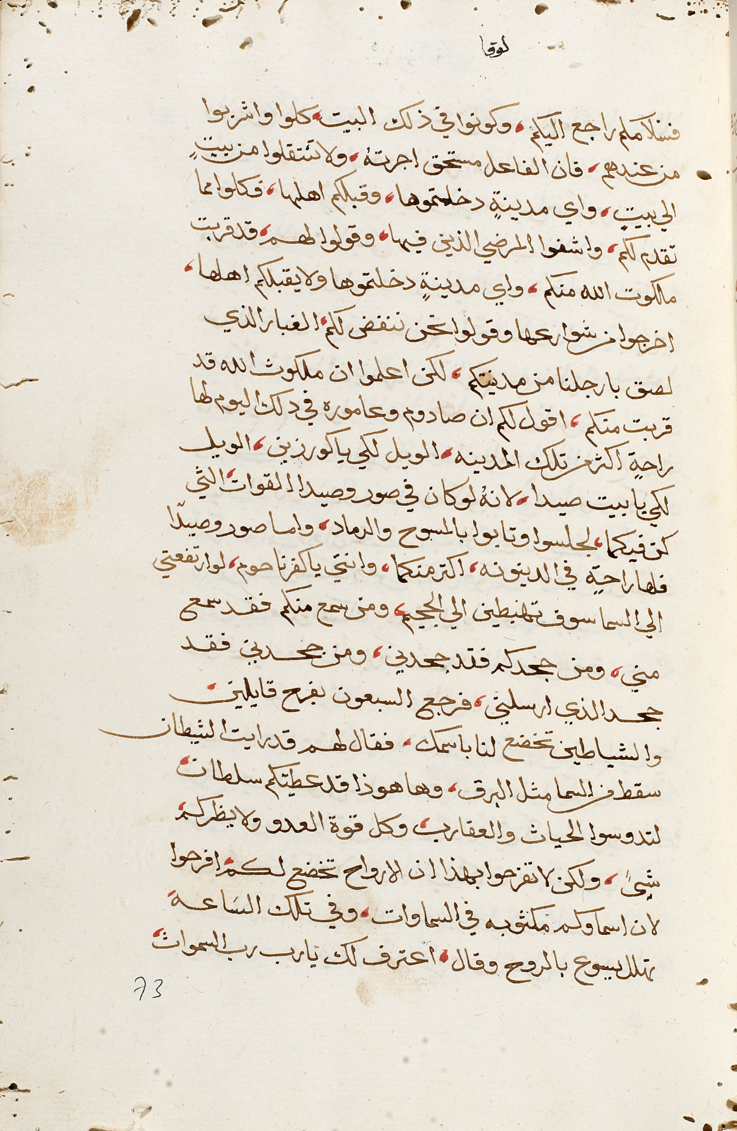 لوقا
فسلامكم راجع اليكم، وكونوا في ذلك البيت، كلوا واشربوا
من عندهم، فان الفاعل مستحق اجرته، ولا تنتقلوا من بيتٍ
الي بيتٍ، واي مدينةٍ دخلتموها، وقبلكم اهلها، فكلوا مما
تقدم لكم، واشفوا المرضي الذين فيها، وقولوا لهم، قد قربت
ملكوت الله منكم، واي مدينةٍ دخلتموها ولا يقبلكم اهلها،
اخرجوا من شوارعها وقولوا نحن ننفض لكم، الغبار الذي
لصق بارجلنا من مدينتكم، لكن اعلموا ان ملكوت الله قد
قربت منكم، اقول لكم ان صادوم وعاموره في ذلك اليوم لها
راحةٍ اكثر من تلك المدينه، الويل لكي يا كورزين، الويل
لكي يا بيت صيدا، لانهُ لو كان في صور وصيدا القوات التي
كن فيكما، لجلسوا وتابوا بالمسوح والرماد، واما صور وصيدا
فلها راحةٍ في الدينونه، اكثر منكما، وانتي يا كفرناحوم، لو ارتفعتي
الي السما سوف تهبطين الي الجحيم، ومن سمع منكم فقد سمع
مني، ومن جحدكم فقد جحدني، ومن جحدني فقد
جحد الذي ارسلني، فرجع السبعون بفرح قايلين،
والشياطين تخضع لنا باسمك، فقال لهم قد رايت الشيطان
سقط من السما مثل البرق، وها هوذا قد عطيتكم سلطان،
لتدوسوا الحيات والعقارب، وكل قوة العدو ولا يظركم،
شيً، ولكن لا تفرحوا بهذا ان الارواح تخضع لكم، افرحوا
لان اسماوكم مكتوبه في السماوات، وفي تلك الساعة
تهلل يسوع بالروح وقال، اعترف لك يا رب رب السموات،
73